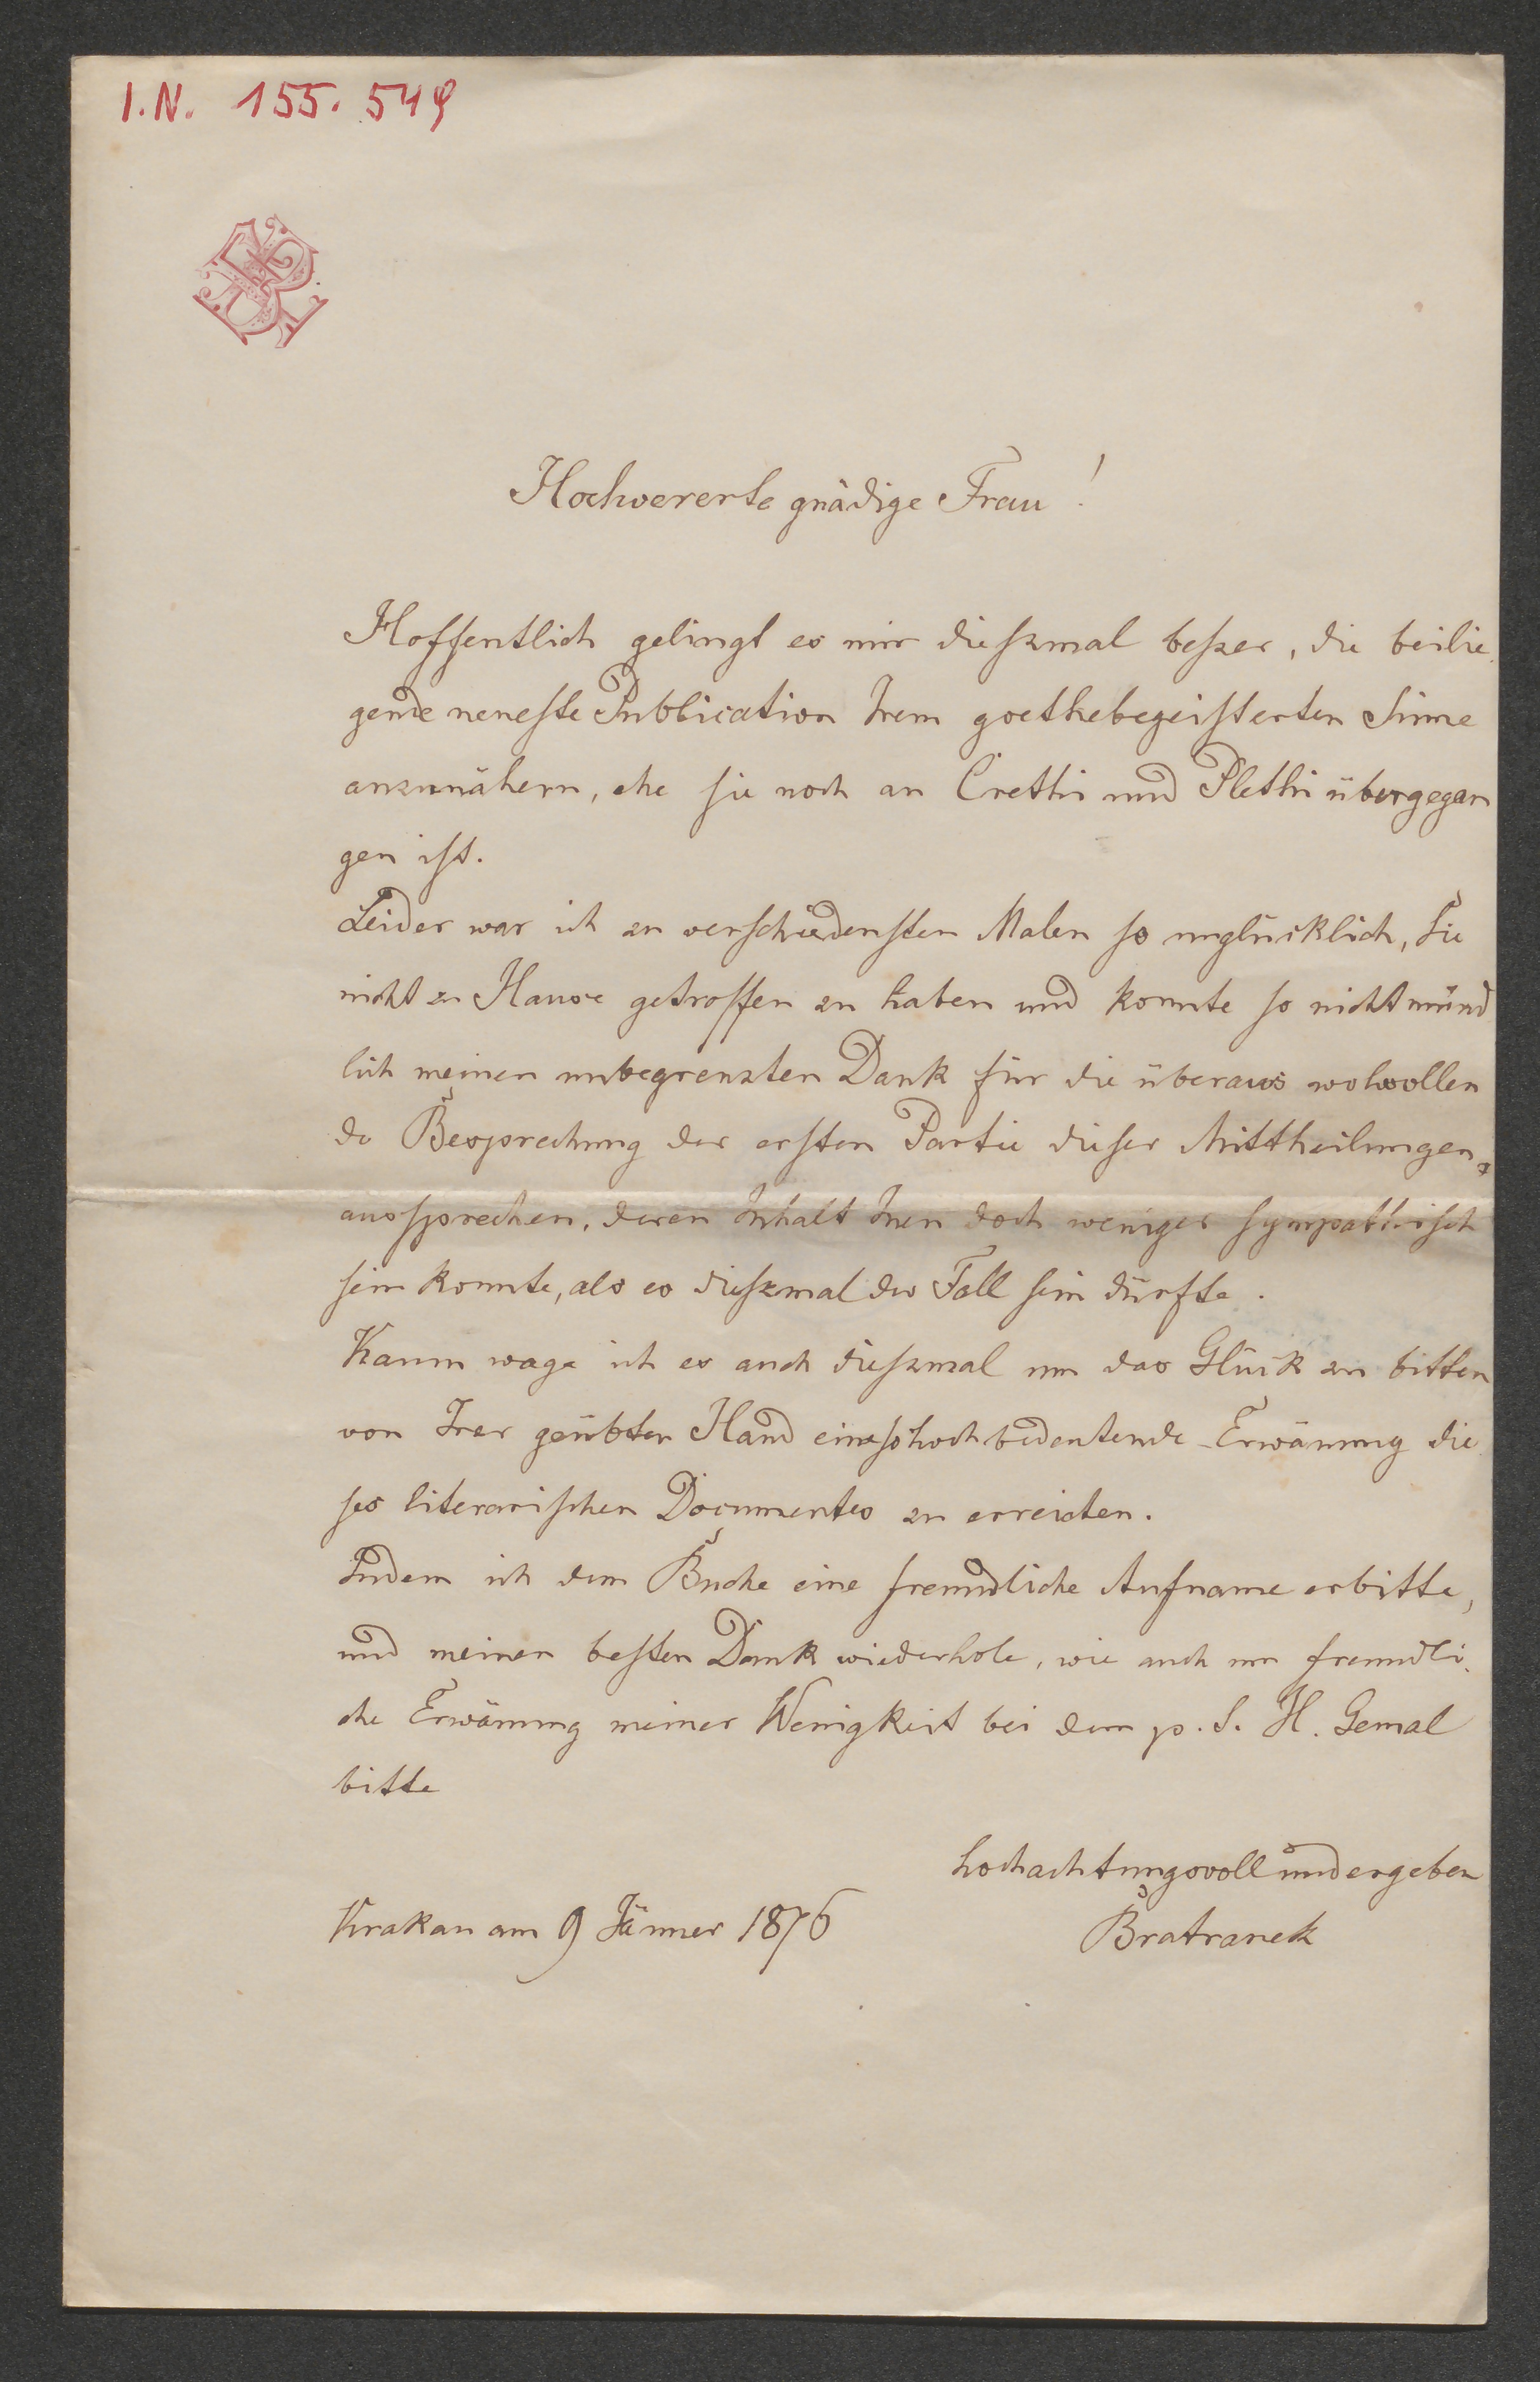 I.N. 155.549
Hochvererte gnädige Frau!
Hoffentlich gelingt es mir dieszmal beszer, die beilie
gende neueste Publication Irem goethebegeisterten Sinne
anzunähern, ehe sie noch an Crethi und Plethi übergegan
gen ist.
Leider war ich zu verschiedensten Malen so unglücklich, Sie
nicht zu Hause getroffen zu haben und konnte so nicht münd
lich meinen unbegrenzten Dank für die überaus wolwollen
de Besprechung der ersten Partie dieser Mittheilungen
aussprechen, deren Inhalt Inen doch weniger sympathisch
sein konnte, als es dieszmal der Fall sein dürfte.
Kaum wage ich es auch dieszmal um das Glück zu bitten
von Irer geübten Hand eine so hoch bedeutende Erwänung die
ses literarischen Documentes zu erreichen.
Indem ich dem Buche eine freundliche Aufname erbitte,
und meinen besten Dank wiederhole, wie auch um freundli
che Erwänung meiner Wenigkeit bei dem H. Gemal
bitte
hochachtungsvoll und ergeben
Krakau am 9 Jänner 1876
Bratranek